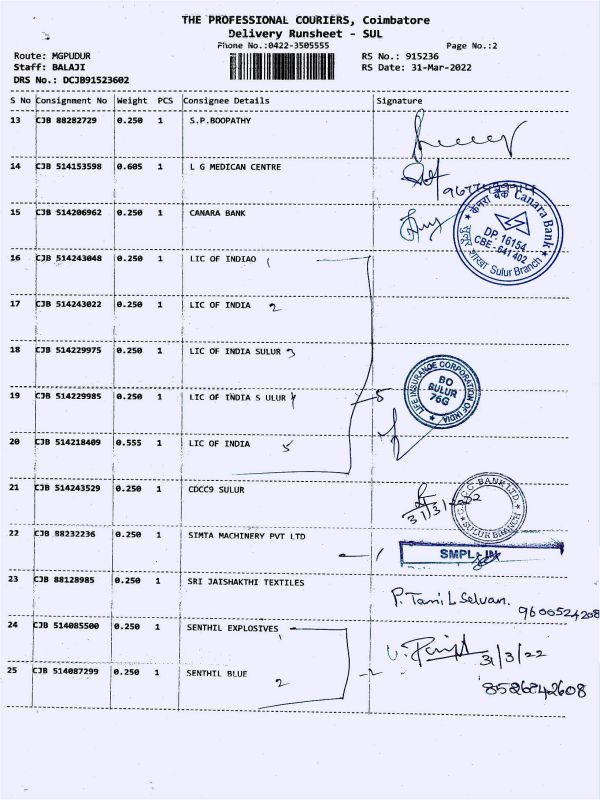 THE PROFESSIONAL COURIERS, Coimbatore
Delivery Runsheet - SUL
Phone No.:0422-3505555
Page No.:2
Route: MGPUDUR
RS No.: 915236
Staff: BALAJI
RS Date: 31-Mar-2022
DRS No.: DCJB91523602
S No Consignment No Weight PCS Consignee Details Signature
13 CJB 88282729 0.250 1 S.P.BOOPATHY
14 CJB 514153598 0.605 1 L G MEDICAN CENTRE
15 CJB 514206962 0.250 1 CANARA BANK
केनरा बैंक Canara Bank
DP. 16154
CBE - 641 402
शाखा Sulur Branch
16 CJB 514243048 0.250 1 LIC OF INDIAO 1
17 CJB 514243022 0.250 1 LIC OF INDIA 2
18 CJB 514229975 0.250 1 LIC OF INDIA SULUR 3
LIFE INSURANCE CORPORATION OF INDIA
BO
SULUR
76G
19 CJB 514229985 0.250 1 LIC OF INDIA S ULUR 4
5
20 CJB 514218409 0.555 1 LIC OF INDIA 5
21 CJB 514243529 0.250 1 CDCC9 SULUR
31/3/2022
C.C. BANK LTD.
SULUR BRANCH
22 CJB 88232236 0.250 1 SIMTA MACHINERY PVT LTD
1
SMPL
23 CJB 88128985 0.250 1 SRI JAISHAKTHI TEXTILES
P. Tamil Selvan.
9600524208
24 CJB 514085500 0.250 1 SENTHIL EXPLOSIVES 1
31/3/22
25 CJB 514087299 0.250 1 SENTHIL BLUE 2
2
8526842608